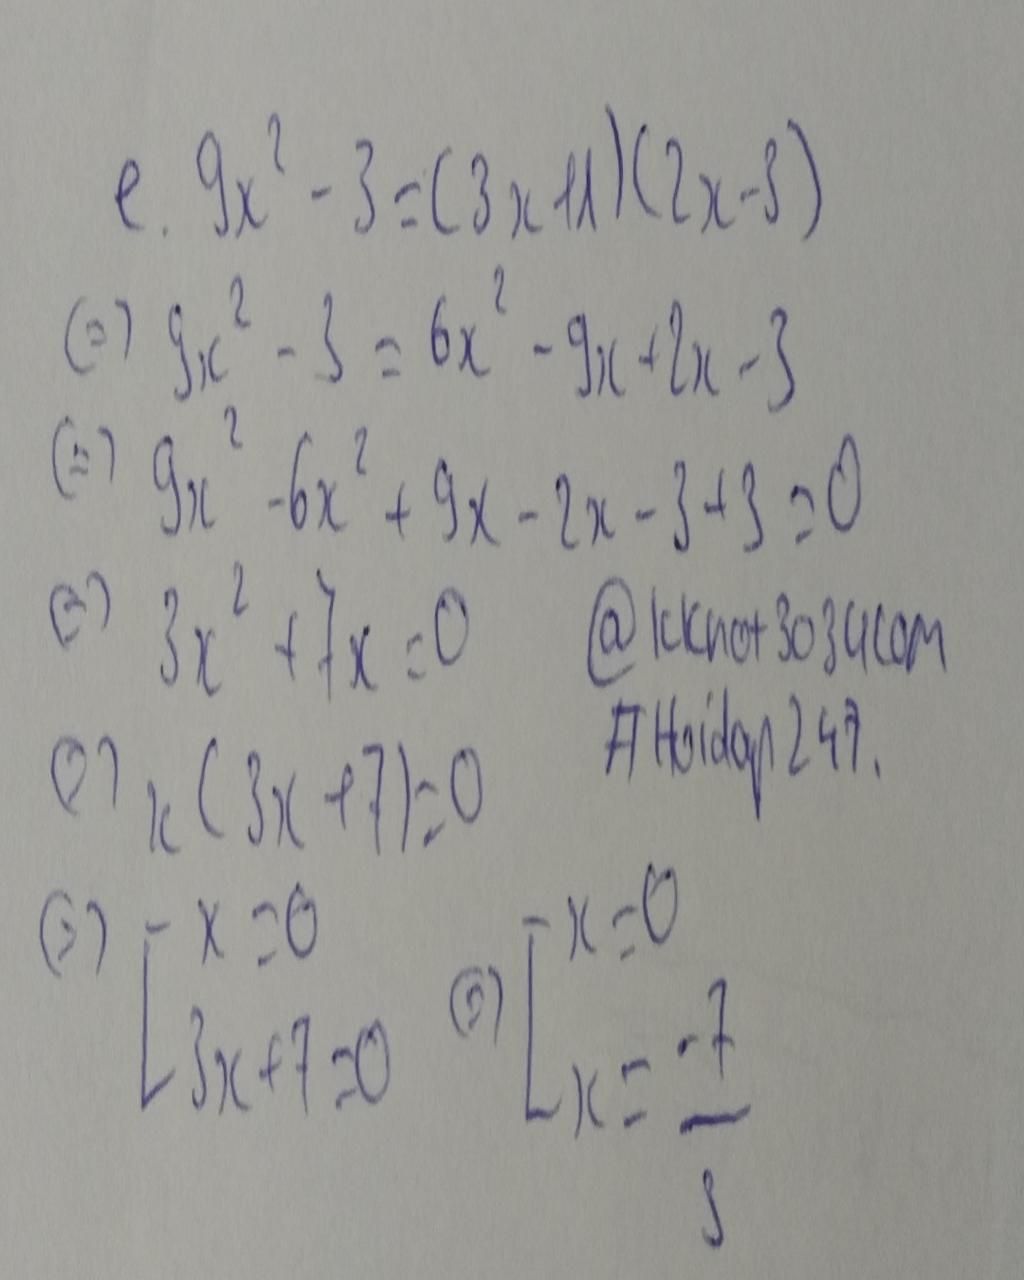 e. 9x² - 3 = (3x+1)(2x-3)
(=) 9x² - 3 = 6x² - 9x + 2x - 3
(=) 9x² - 6x² + 9x - 2x - 3 + 3 = 0
(=) 3x² + 7x = 0
@kknot3034com
#Hoidap247.
(=) x(3x+7) = 0
(=) [ x = 0 (=) [ x = 0
3x+7 = 0 x = -7/3